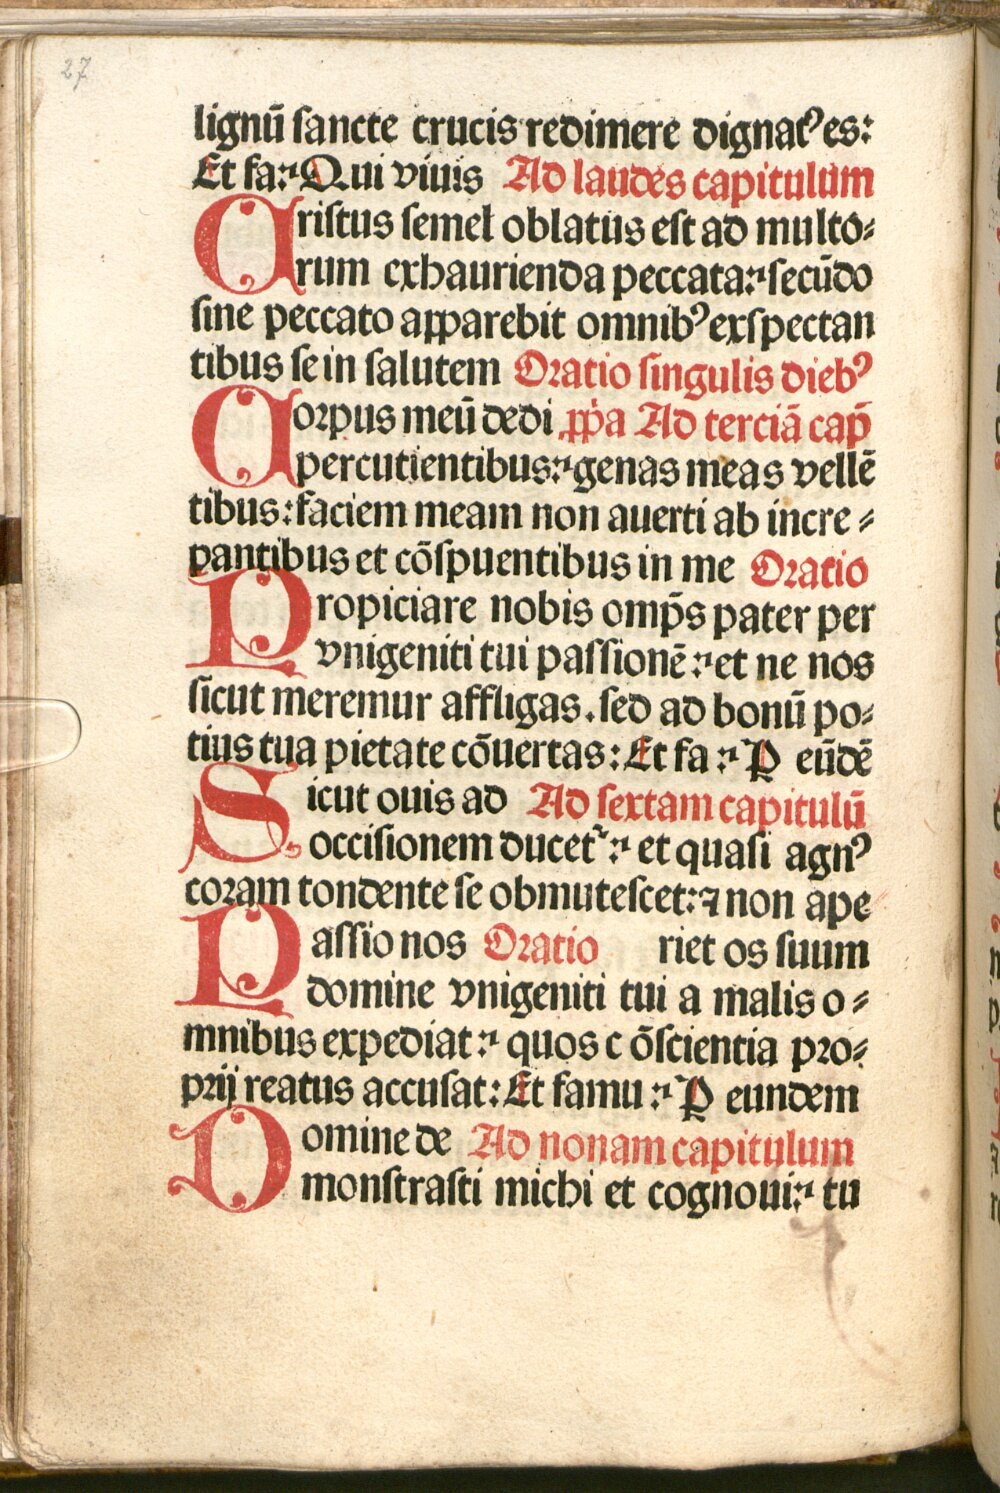 27
lignū sancte crucis redimere dignatꝰ es:
Et fa⁊ Qui viuis Ad laudes capitulum
Cristus semel oblatus est ad multo⸗
rum exhaurienda peccata⁊ secūdo
sine peccato apparebit omnibꝰ exspectan
tibus se in salutem Oratio singulis diebꝰ
Corpus meū dedi ꝓpͥa Ad terciā cap̄
percutientibus:⁊ genas meas vellē
tibus: faciem meam non auerti ab incre⸗
pantibus et cōspuentibus in me Oratio
Propiciare nobis omp̄s pater per
vnigeniti tui passionē:⁊ et ne nos
sicut meremur affligas. sed ad bonū po⸗
tius tua pietate cōuertas: Et fa:⁊ P eūdē
Sicut ouis ad Ad sextam capitulū
occisionem ducet᷑:⁊ et quasi agnꝰ
coram tondente se obmutescet:⁊ non ape
Passio nos Oratio riet os suum
domine vnigeniti tui a malis o⸗
mnibus expediat:⁊ quos cōscientia pro⸗
prij reatus accusat: Et famu:⁊ P eundem
Domine de Ad nonam capitulum
monstrasti michi et cognoui:⁊ tu